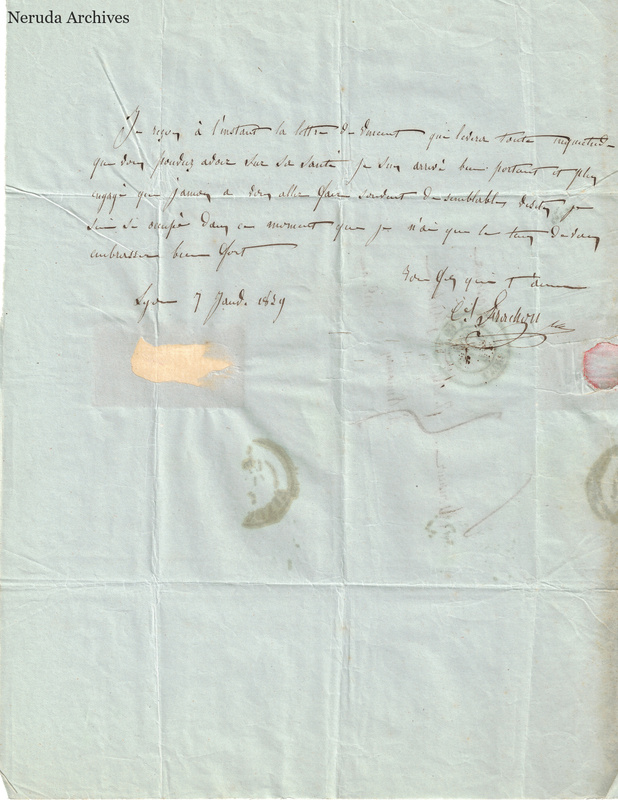 Neruda Archives
Je reçois à l'instant la lettre de Vincent qui lèvera toute inquiétude
que vous pouviez avoir sur sa santé je suis arrivé bien portant et plus
engagé que jamais a vous aller faire souvent de semblables visites je
suis si occupé dans ce moment que je n'ai que le tems de vous
embrasser bien fort
ton fils qui t'aime
Lyon 7 Janv. 1839